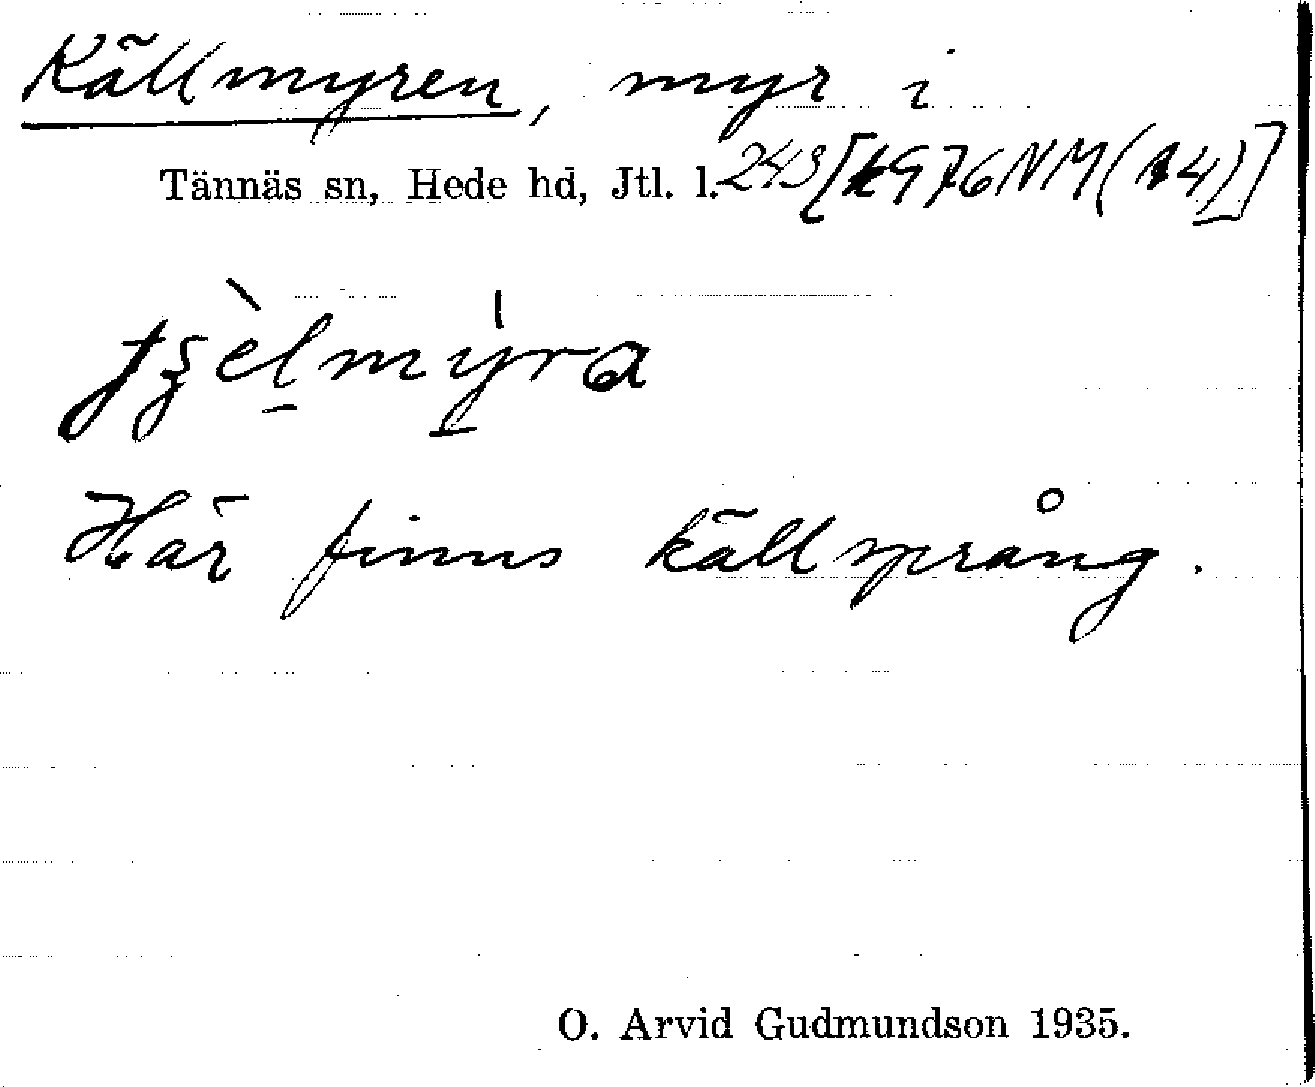 Källmyren, myr i
Tännäs sn, Hede hd, Jtl. l. 243 [1976 NM (14)]
Här finns källsprång.
O. Arvid Gudmundson 1935.